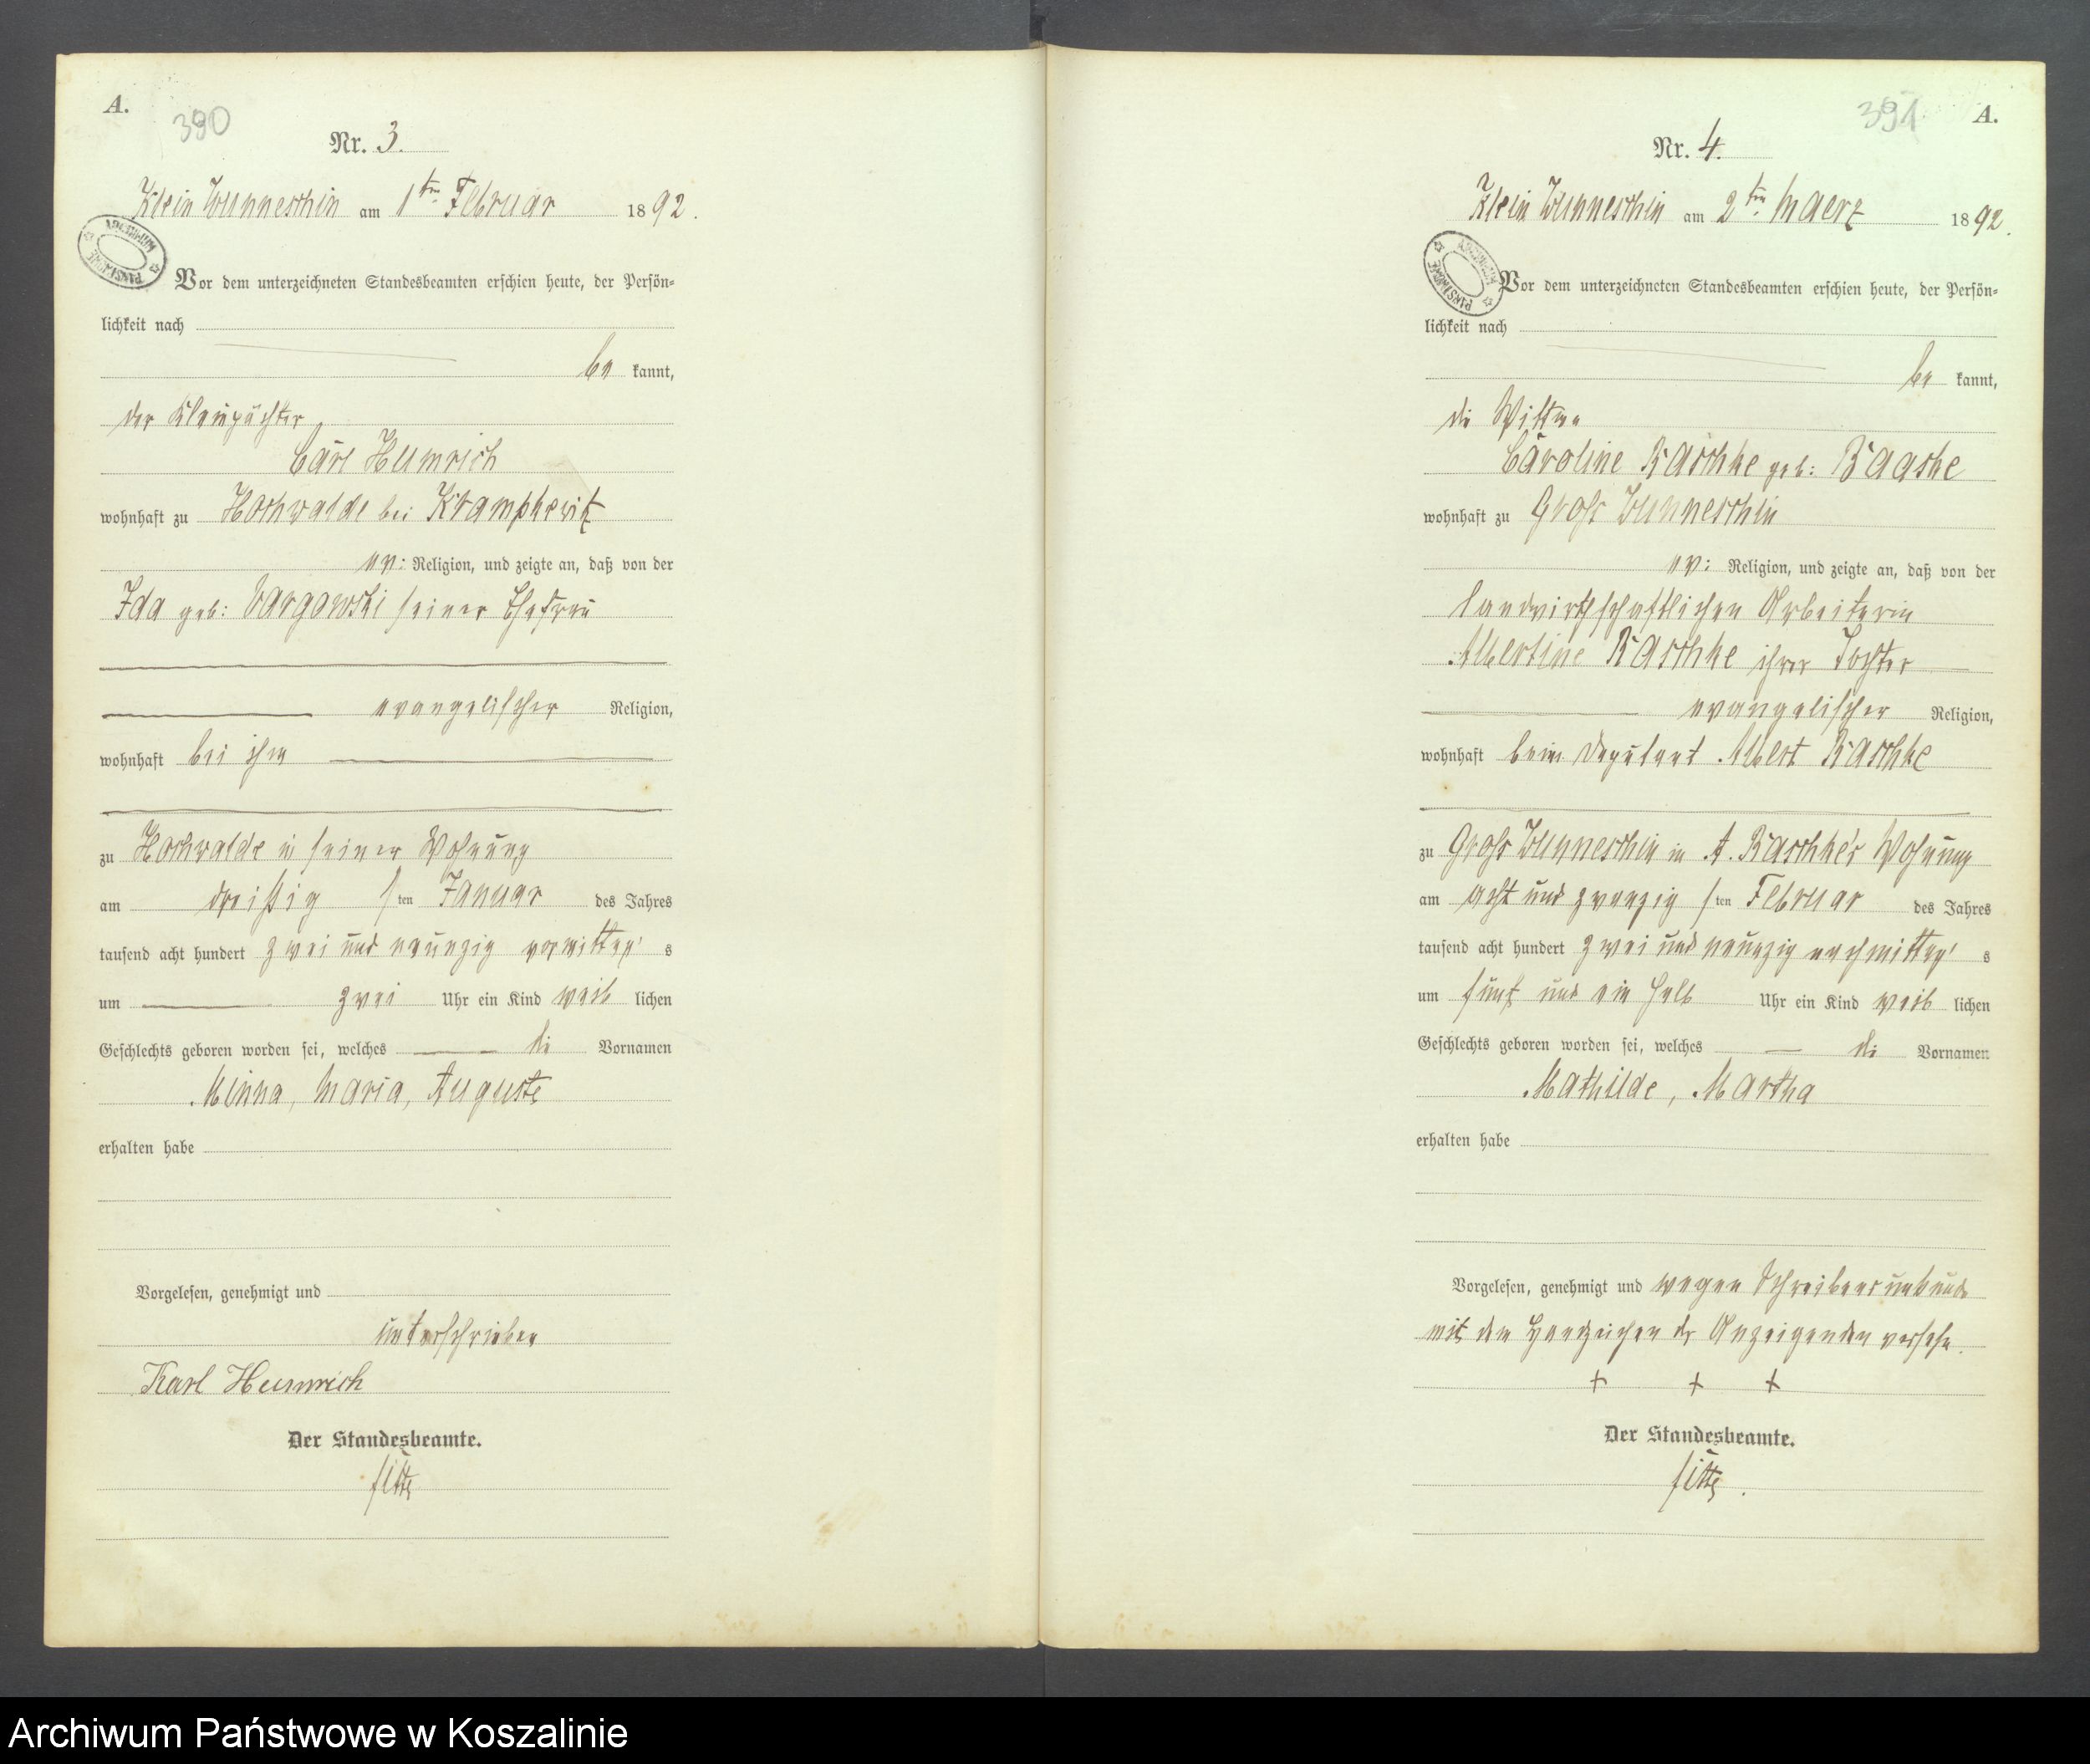 A.
390
Nr. 3.
Klein Wunneschin am 1ten Februar 1892.
ARCHIWUM PAŃSTWOWE
Vor dem unterzeichneten Standesbeamten erschien heute, der Persön-
lichkeit nach
be kannt,
der Kleinpächter
Carl Heinrich
wohnhaft zu Hochwalde bei Krampkewitz
ev: Religion, und zeigte an, daß von der
Ida geb: Vargowski seiner Ehefrau
evangelischer Religion,
wohnhaft bei ihm
zu Hochwalde in seiner Wohnung
am dreißig sten Januar des Jahres
tausend acht hundert zwei und neunzig vormittag s
um zwei Uhr ein Kind weib lichen
Geschlechts geboren worden sei, welches die Vornamen
Minna, Maria, Auguste
erhalten habe
Vorgelesen, genehmigt und
unterschrieben
Karl Heinrich
Der Standesbeamte.
A.
391
Nr. 4.
Klein Wunneschin am 2ten Maerz 1892.
ARCHIWUM PAŃSTWOWE
Vor dem unterzeichneten Standesbeamten erschien heute, der Persön-
lichkeit nach
be kannt,
die Wittwe
Caroline Raschke geb: Baaske
wohnhaft zu Groß Wunneschin
ev: Religion, und zeigte an, daß von der
landwirthschaftlichen Arbeiterin
Albertine Raschke ihrer Tochter
evangelischer Religion,
wohnhaft beim Deputant Albert Raschke
zu Groß Wunneschin in A. Raschke's Wohnung
am acht und zwanzig sten Februar des Jahres
tausend acht hundert zwei und neunzig nachmittag s
um fünf und ein halb Uhr ein Kind weib lichen
Geschlechts geboren worden sei, welches die Vornamen
Mathilde, Martha
erhalten habe
Vorgelesen, genehmigt und wegen Schreibensunkunde
mit dem Handzeichen der Anzeigenden versehn.
+ + +
Der Standesbeamte.
Archiwum Państwowe w Koszalinie